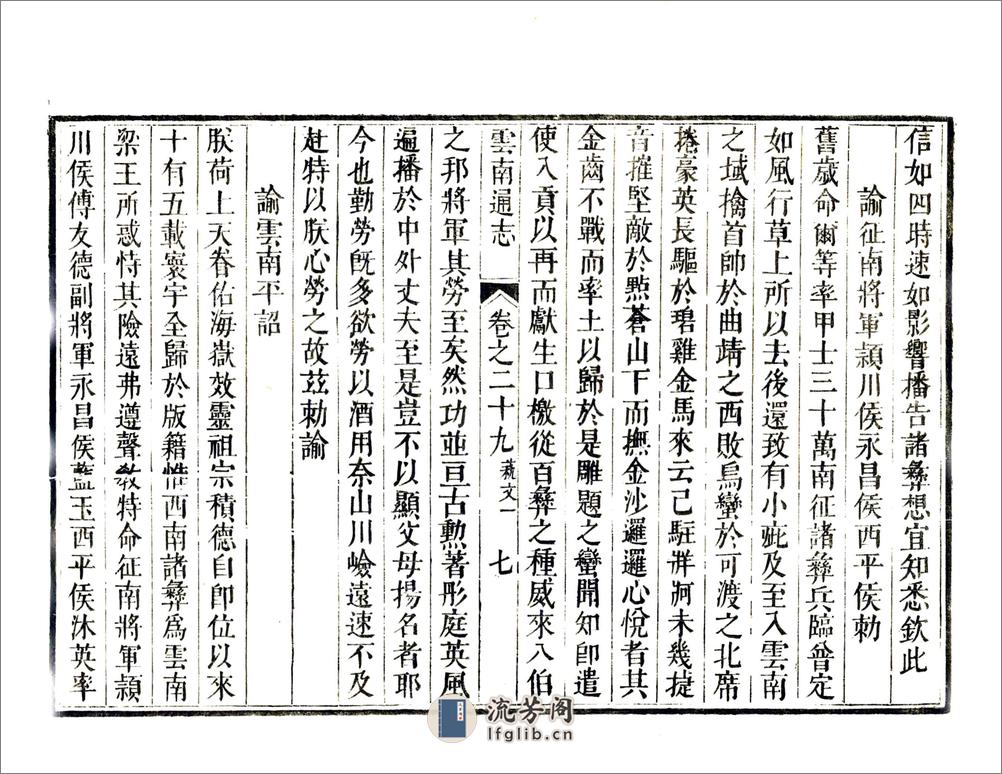 信如四時速如影響播告諸彝想宜知悉欽此
諭征南將軍潁川侯永昌侯西平侯勅
舊歲命爾等率甲士三十萬南征諸彝兵臨曾定
如風行草上所以去後還致有小疵及至入雲南
之域擒首帥於曲靖之西敗烏蠻於可渡之北席
捲豪英長驅於碧雞金馬來云已駐牂牁未幾捷
音摧堅敵於點蒼山下而撫金沙邏邏心悅者其
金齒不戰而率土以歸於是雕題之蠻聞知卽遣
使入貢以再而獻生口檄從百彝之種威來八伯
雲南通志 卷之二十九 藝文一 七
之邦將軍其勞至矣然功並亘古勲著彤庭英風
遍播於中外丈夫至是豈不以顯父母揚名者耶
今也勤勞旣多欲勞以酒用奈山川嶮遠速不及
赴特以朕心勞之故茲勅諭
諭雲南平詔
朕荷上天眷佑海嶽效靈祖宗積德自卽位以來
十有五載寰宇全歸於版籍惟西南諸彝爲雲南
梁王所惑恃其險遠弗遵聲敎特命征南將軍潁
川侯傅友德副將軍永昌侯藍玉西平侯沐英率
流芳阁
lfglib.cn